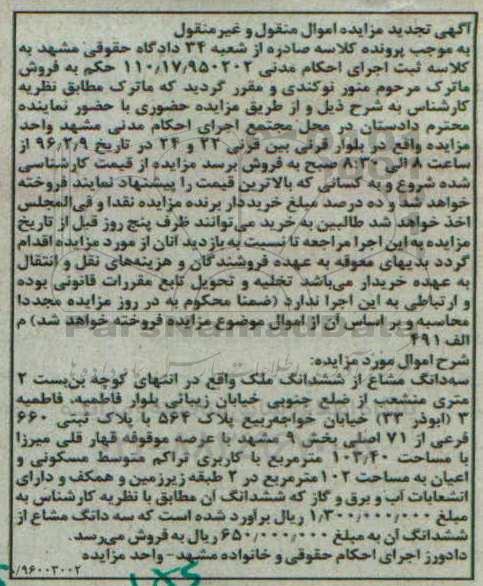 آگهی تجدید مزایده اموال منقول و غیرمنقول
به موجب پرونده کلاسه صادره از شعبه ۳۴ دادگاه حقوقی مشهد به
کلاسه ثبت اجرای احکام مدنی ۱۱۰٫۱۷٫۹۵۰۲۰۲ حکم به فروش
ماترک مرحوم منور نوکندی و مقرر گردید که ماترک مطابق نظریه
کارشناس به شرح ذیل و از طریق مزایده حضوری با حضور نماینده
محترم دادستان در محل مجتمع اجرای احکام مدنی مشهد واحد
مزایده واقع در بلوار قرنی بین قرنی ۲۲ و ۲۴ در تاریخ ۹۶٫۲٫۹ از
ساعت ۸ الی ۸:۳۰ صبح به فروش برسد مزایده از قیمت کارشناسی
شده شروع و به کسانی که بالاترین قیمت را پیشنهاد نمایند فروخته
خواهد شد و ده درصد مبلغ خرید دار برنده مزایده نقدا و فی‌المجلس
اخذ خواهد شد طالبین به خرید می‌توانند ظرف پنج روز قبل از تاریخ
مزایده به این اجرا مراجعه تا نسبت به بازدید آنان از مورد مزایده اقدام
گردد بدیهای معوقه به عهده فروشندگان و هزینه‌های نقل و انتقال
به عهده خریدار می‌باشد تخلیه و تحویل تابع مقررات قانونی بوده
و ارتباطی به این اجرا ندارد (ضمنا محکوم به در روز مزایده مجددا
محاسبه و بر اساس آن از اموال موضوع مزایده فروخته خواهد شد) م
الف ۴۹۱
شرح اموال مورد مزایده:
سه‌دانگ مشاع از ششدانگ ملک واقع در انتهای کوچه بن‌بست ۲
متری منشعب از ضلع جنوبی خیابان زیبائی بلوار فاطمیه، فاطمیه
۳ (ابوذر ۳۳) خیابان خواجه‌ربیع پلاک ۵۶۴ با پلاک ثبتی ۶۶۰
فرعی از ۷۱ اصلی بخش ۹ مشهد با عرصه موقوفه قهار قلی میرزا
با مساحت ۱۰۳٫۴۰ مترمربع با کاربری تراکم متوسط مسکونی و
اعیان به مساحت ۱۰۲مترمربع در ۲ طبقه زیرزمین و همکف و دارای
انشعابات آب و برق و گاز که ششدانگ آن مطابق با نظریه کارشناس به
مبلغ ۱٫۳۰۰٫۰۰۰٫۰۰۰ ریال برآورد شده است که سه دانگ مشاع از
ششدانگ آن به مبلغ ۶۵۰٫۰۰۰٫۰۰۰ ریال به فروش می‌رسد.
دادورز اجرای احکام حقوقی و خانواده مشهد- واحد مزایده
/۹۶۰۰۳۰۰۲
ParsNamadData